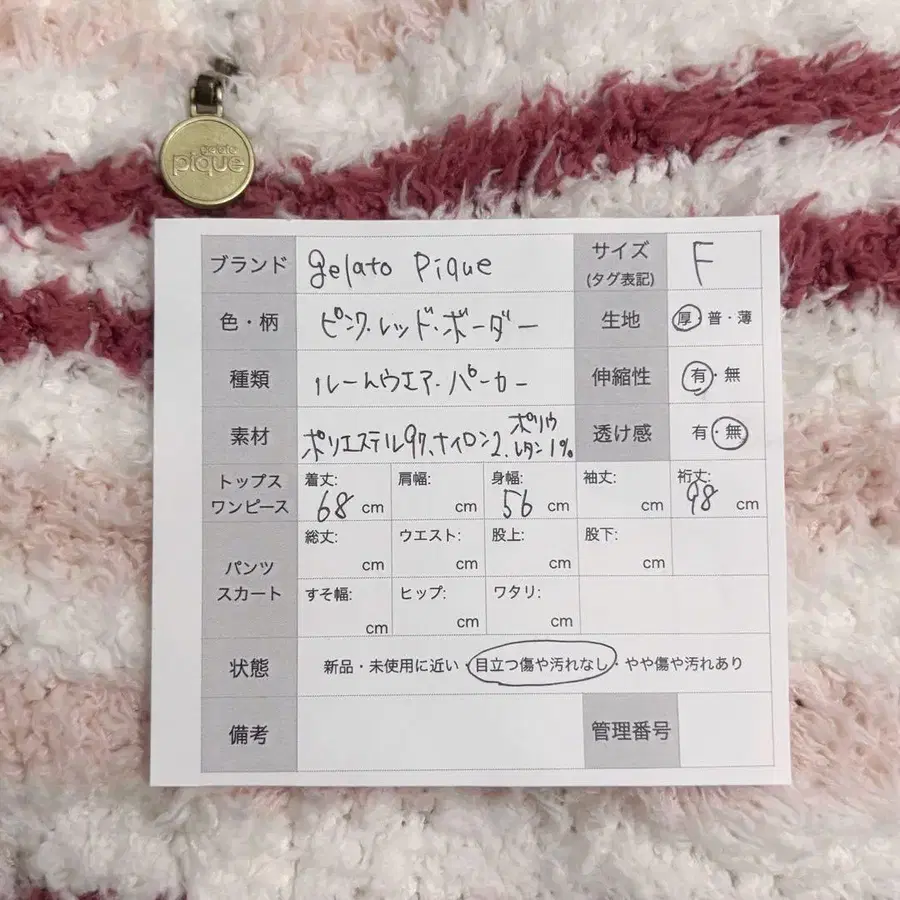 gelato
pique
ブランド gelato pique サイズ (タグ表記) F
色・柄 ピンク.レッド.ボーダー 生地 厚・普・薄
種類 ルームウエア.パーカー 伸縮性 有・無
素材 ポリエステル97、ナイロン2、ポリウレタン1% 透け感 有・無
トップス ワンピース 着丈: 68 cm 肩幅: cm 身幅: 56 cm 袖丈: cm 裄丈: 98 cm
パンツ スカート 総丈: cm ウエスト: cm 股上: cm 股下: cm
すそ幅: cm ヒップ: cm ワタリ: cm
状態 新品・未使用に近い・目立つ傷や汚れなし・やや傷や汚れあり
備考 管理番号